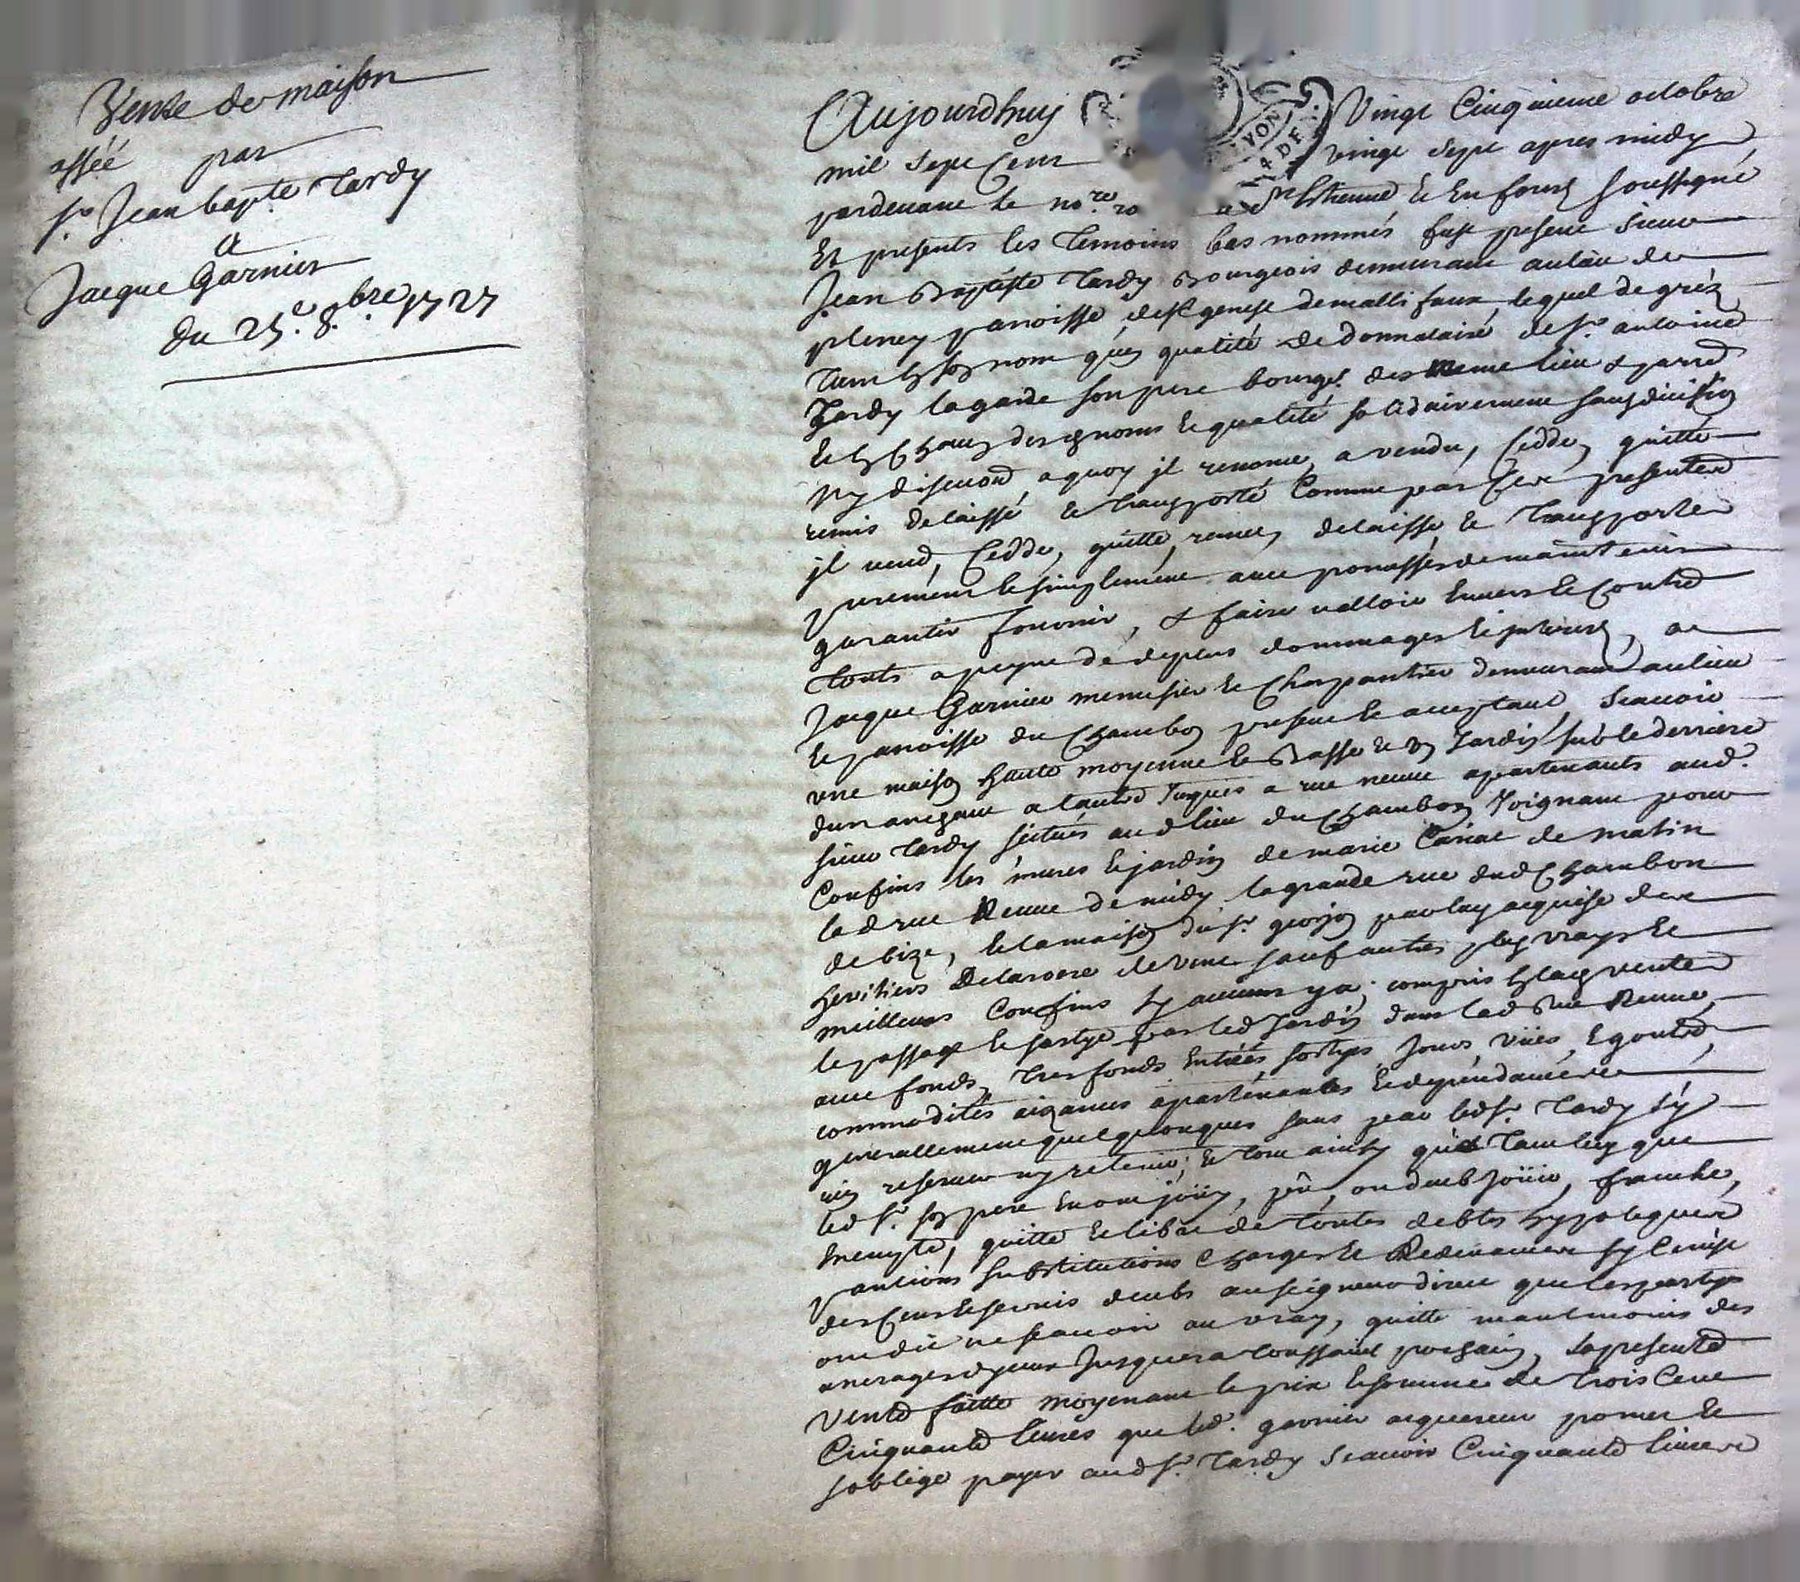 Vente de maison
passéé par
sr. Jean bapte Tardy
a
Jacque Garnier
du 25e. 8.bre 1727
Aujourdhuy Vingt Cinquieme octobre
mil sept Cent vingt sept apres midy
pardevant le nore. ro St Estienne de en forest soussigné
Et presents les temoins bas nommés fust present sieur
Jean Baptiste Tardy Bourgeois demeurant au lieu de
pleney parroisse de st genest de mallifaux, lequel de gréz
tant en son nom qu'en qualité de donnataire de sr. antoine
Tardy lagarde son pere bourgs. du meme lieu & parre
& en Chaun desd noms & qualité solidairement sans division
ny discution a quoy il renonce, a vendu, Ceddé, quitté
remis delaissé & transporté Comme par Ces presentes
il vend, Cedde, quitte, remet, delaisse & transporte
purement & simplement avec promesses de maintenir
garantir fournir, & faire valloir Envers & Contre
touts a peyne de depens dommages & interests, a
Jacque Garnier menusier & Charpantier demeurant au lieu
& parroisse du Chambon present & acceptant, scavoir
une maison haute moyenne & Basse & un Jardin sur le derriere
dun a l'autre Jusques a rue neuve apartenants aud.
sieur Tardy scitués aud lieu du Chambon Joignant pour
Confins les murs & jardin de marie de matin
lad rue Neuve de midy la grande rue dud Chambon
de bize, & la maison du sr. par luy acquise des
heritiers Delaroere de vent sauf autres plus vrays &
meilleurs Confins sy aucuns y a, compris En lad vente
le passage & sortye par led Jardin dans lad Rue Neuve,
avec fonds, tres fonds Entréés, sortyes Jours vües, Egouts,
commodités aizances apartenances & dependances
generallement quelquonques sans par led sr. Tardy s'y
rien reserver ny retenir, & tout ainsy que tant luy que
led sr. son pere En ont joüy, peu, ou deub Joüir, franche,
Exempte, quitte & libre de toutes debtes hypoteques
pantions substitutions Charges & Redevances sy Ce n'est
des Cens & servis deubs au seigneur direct que les partyes
ont dit ne scavoir au vray, quitte neantmoins des
arrerages d'yceux Jusques a toussaint prochain, La presente
vente faitte moyenant le prix & somme de trois Cent
Cinquante livres que led. garnier acquereur promet &
soblige payer aud sr. Tardy scavoir Cinquante livres